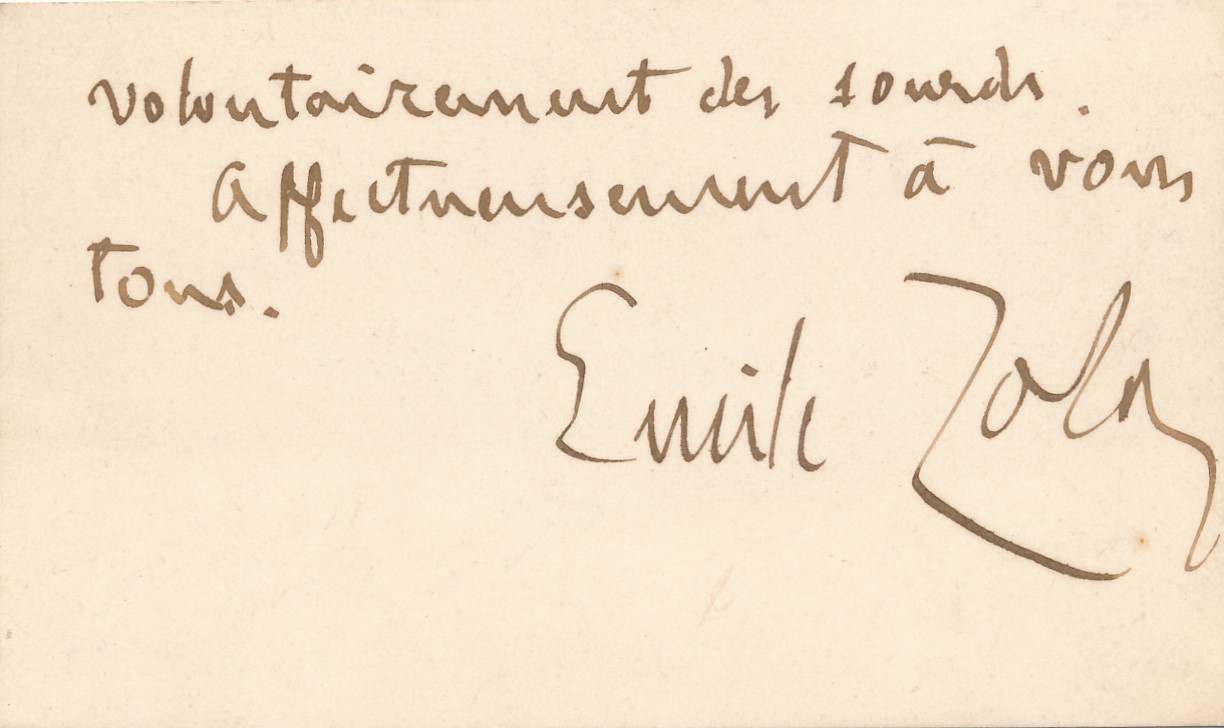 volontairement des sourds.
Affectueusement à vous
tous.
Emile Zola